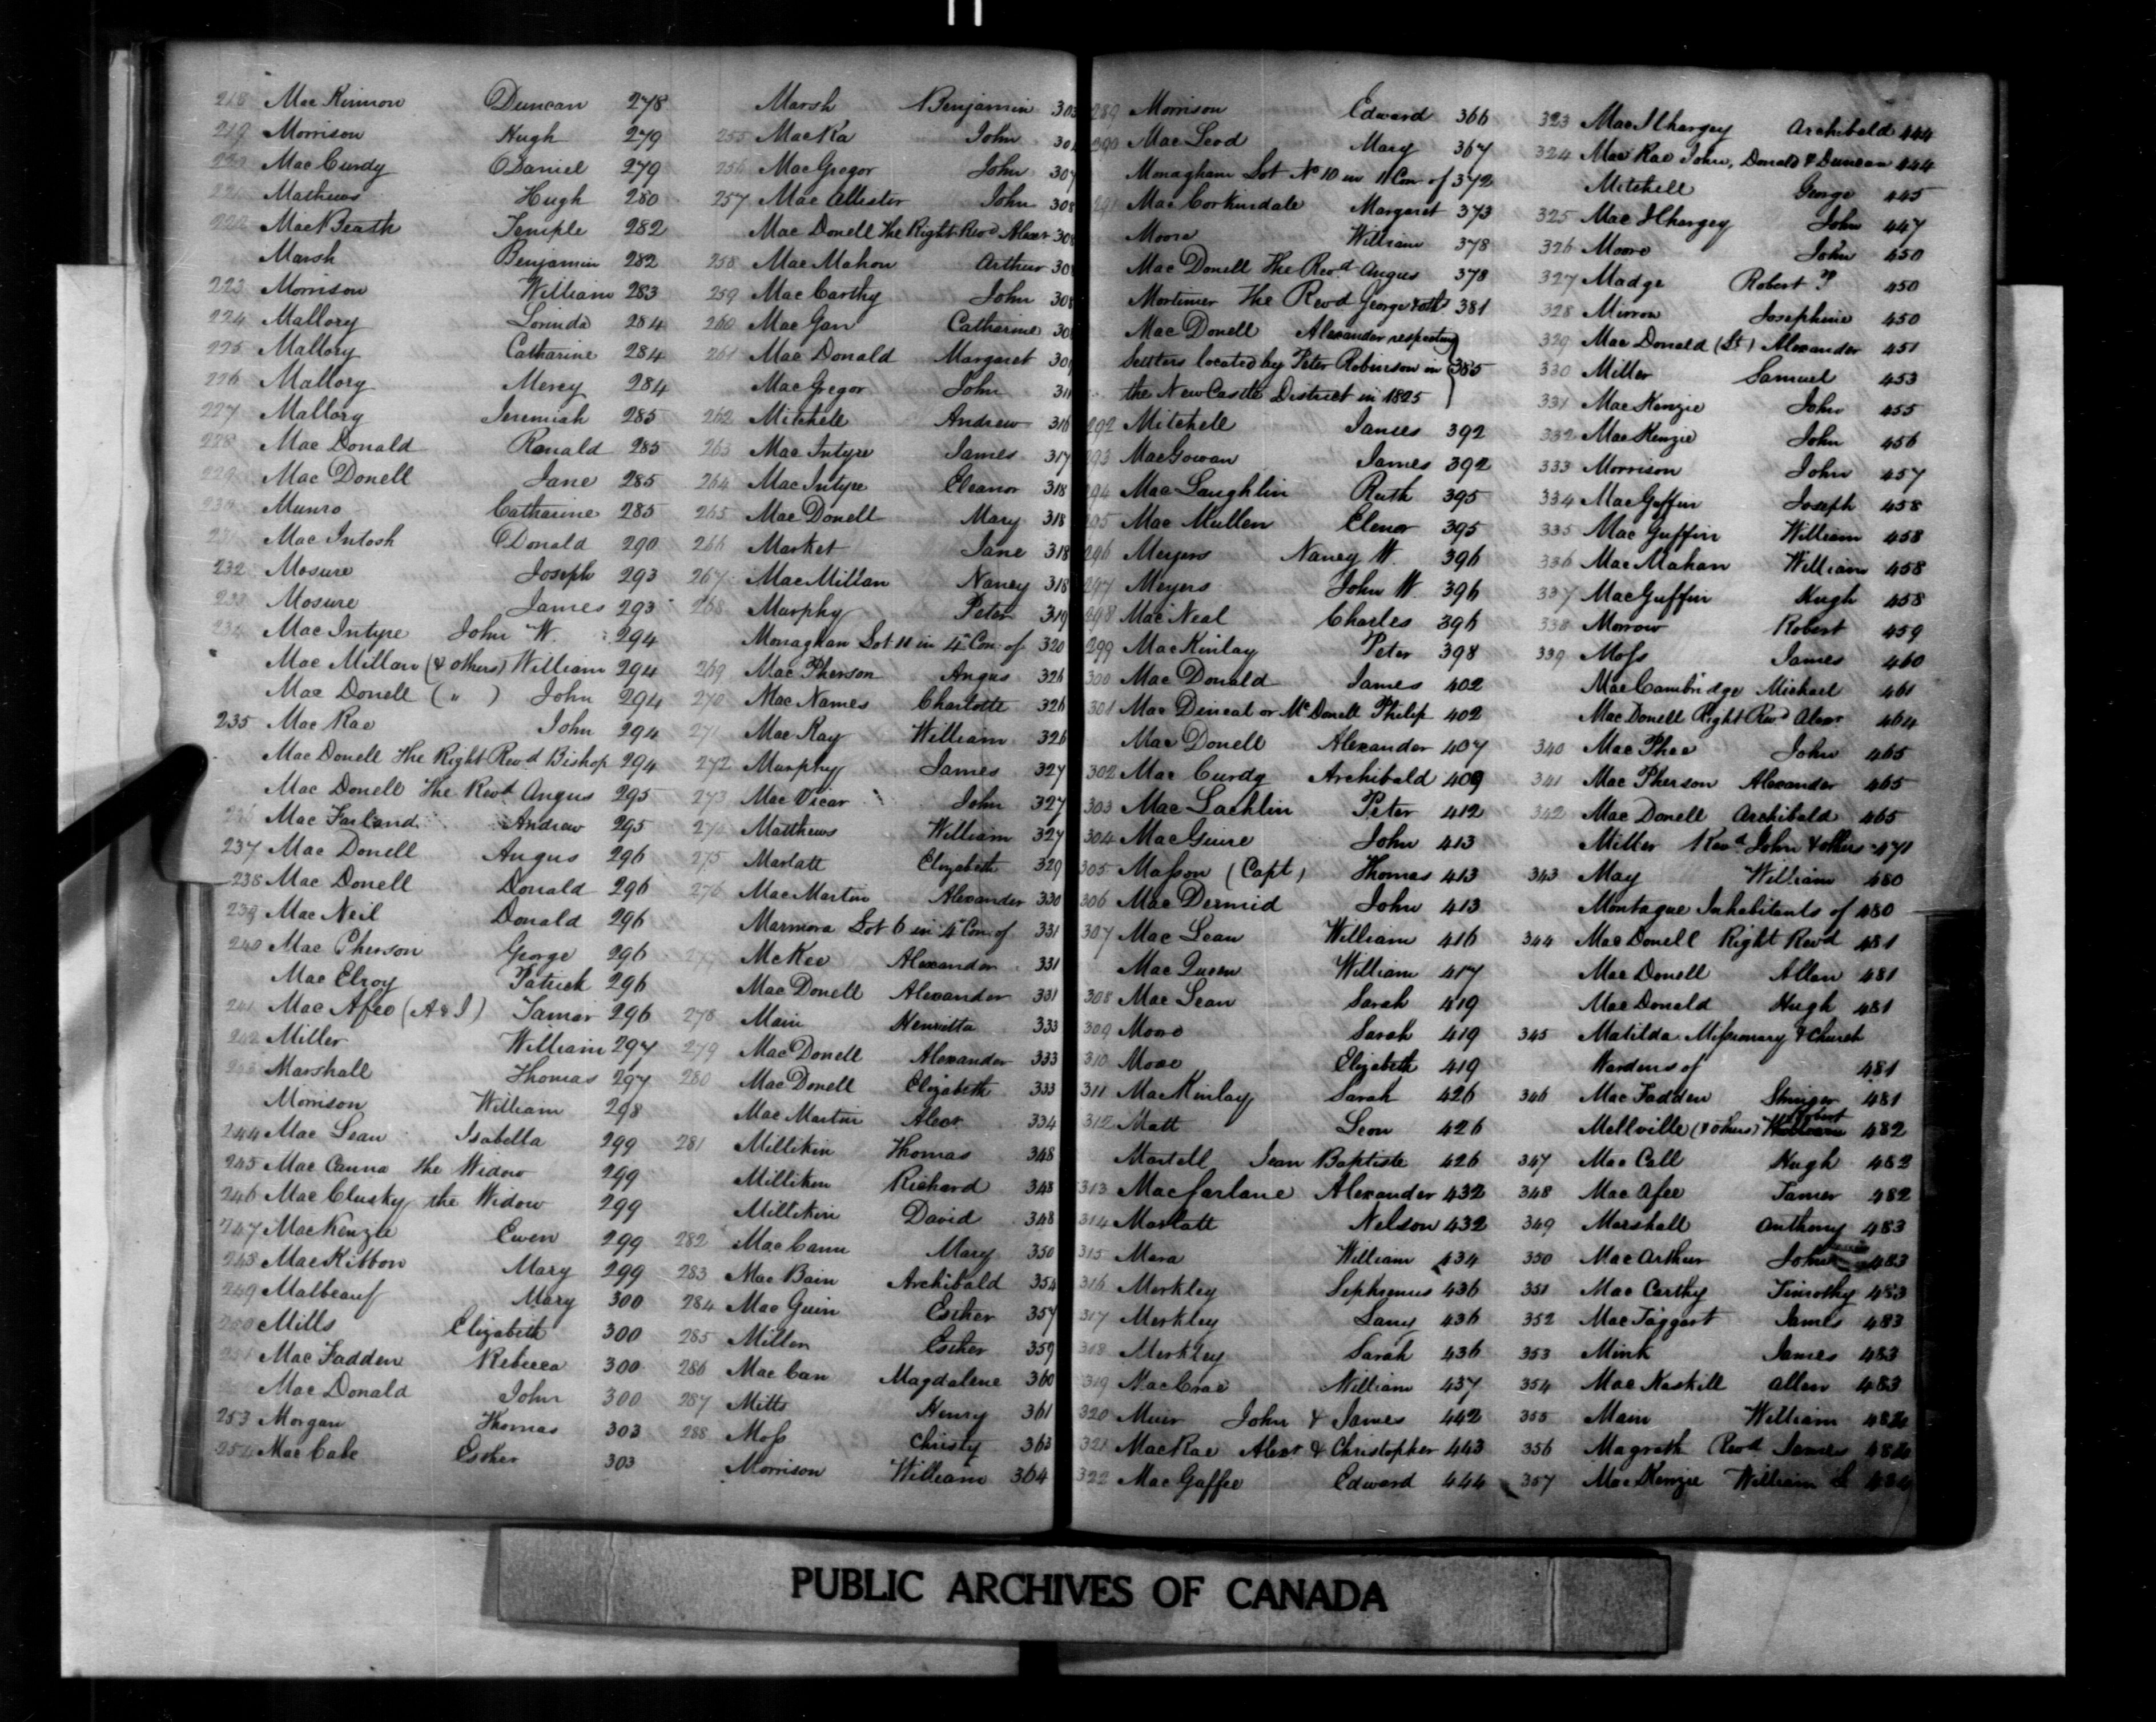 218 Mac Kinnon Duncan 278
219 Morrison Hugh 279
220 Mac Curdy Daniel 279
221 Mathews Hugh 280
222 Mac Beath Temple 282
Marsh Benjamin 282
223 Morrison William 283
224 Mallory Lorinda 284
225 Mallory Catharine 284
226 Mallory Mercy 284
227 Mallory Jeremiah 285
228 Mac Donald Ronald 285
229 Mac Donell Jane 285
230 Munro Catharine 285
231 Mac Intosh Donald 290
232 Mosure Joseph 293
233 Mosure James 293
234 Mac Intyre John W. 294
Mac Millan (& others) William 294
Mac Donell ( " ) John 294
235 Mac Rae John 294
Mac Donell The Right Revd Bishop 294
Mac Donell The Revd Angus 295
236 Mac Farland Andrew 295
237 Mac Donell Angus 296
238 Mac Donell Donald 296
239 Mac Neil Donald 296
240 Mac Pherson George 296
Mac Elroy Patrick 296
241 Mac Afee (A & I) Tamar 296
242 Miller William 297
243 Marshall Thomas 297
Morrison William 298
244 Mac Lean Isabella 299
245 Mac Canna the Widow 299
246 Mac Clusky the Widow 299
247 Mac Kenzie Ewen 299
248 Mac Kibbon Mary 299
249 Malbeauf Mary 300
250 Mills Elizabeth 300
251 Mac Fadden Rebecca 300
252 Mac Donald John 300
253 Morgan Thomas 303
254 Mac Cabe Esther 303
Marsh Benjamin 303
255 Mac Ka John 30
256 Mac Gregor John 307
257 Mac Allister John 308
Mac Donell The Right Revd Alexr 308
258 Mac Mahon Arthur 30
259 Mac Carthy John 308
260 Mac Gan Catharine 30
261 Mac Donald Margaret 30
Mac Gregor John 311
262 Mitchell Andrew 316
263 Mac Intyre James 317
264 Mac Intyre Eleanor 318
265 Mac Donell Mary 318
266 Market Jane 318
267 Mac Millan Nancy 318
268 Murphy Peter 319
Monaghan Lot 11 in 4 Con. of 320
269 Mac Pherson Angus 326
270 Mac Names Charlotte 326
271 Mac Kay William 326
272 Murphy James 327
273 Mac Vicar John 327
274 Matthews William 327
275 Marlatt Elizabeth 329
276 Mac Martin Alexander 330
Marmora Lot 6 in 4 Con. of 331
277 McKee Alexander 331
Mac Donell Alexander 331
278 Main Henrietta 333
279 Mac Donell Alexander 333
280 Mac Donell Elizabeth 333
Mac Martin Alexr 334
281 Millikin Thomas 348
Milliken Richard 348
Millikin David 348
282 Mac Cann Mary 350
283 Mac Bain Archibald 354
284 Mac Guin Esther 357
285 Miller Esther 359
286 Mac Can Magdalene 360
287 Mitts Henry 361
288 Moss Christy 363
Morrison William 364
289 Morrison Edward 366
290 Mac Leod Mary 367
Monaghan Lot No 10 in 11 Con. of 372
291 Mac Corkindale Margaret 373
Moore William 378
Mac Donell The Revd Angus 378
Mortimer The Revd George & oth 381
Mac Donell Alexander respecting
Settlers located by Peter Robinson in 385
the New Castle District in 1825
292 Mitchell James 392
293 Mac Gowan James 392
294 Mac Laughlin Ruth 395
295 Mac Mullen Elenor 395
296 Meyers Nancy W. 396
297 Meyers John W. 396
298 Mac Neal Charles 396
299 Mac Kinlay Peter 398
300 Mac Donald James 402
301 Mac Dineal or Mc Donell Philip 402
Mac Donell Alexander 407
302 Mac Curdy Archibald 409
303 Mac Lachlin Peter 412
304 Mac Guire John 413
305 Masson (Capt) Thomas 413
306 Mac Dermid John 413
307 Mac Lean William 416
Mac Queen William 417
308 Mac Lean Sarah 419
309 Moore Sarah 419
310 Moore Elizabeth 419
311 Mac Kinlay Sarah 426
312 Matt Leon 426
Martell Jean Baptiste 426
313 Macfarlane Alexander 432
314 Marlatt Nelson 432
315 Mara William 434
316 Merkley Sephrenus 436
317 Merkley Lany 436
318 Merkley Sarah 436
319 Mac Crae William 437
320 Muir John & James 442
321 Mac Rae Alexr & Christopher 443
322 Mac Gaffee Edward 444
323 Mac Ilhargey Archibald 444
324 Mac Rae John, Donald & Duncan 444
Mitchell George 445
325 Mac Ilhargey John 447
326 Moore John 450
327 Madge Robert P 450
328 Mirrow Josephine 450
329 Mac Donald (Lt) Alexander 451
330 Miller Samuel 453
331 Mac Kenzie John 455
332 Mac Kenzie John 456
333 Morrison John 457
334 Mac Guffin Joseph 458
335 Mac Guffin William 458
336 Mac Mahan William 458
337 Mac Guffin Hugh 458
338 Morrow Robert 459
339 Moss James 460
Mac Cambridge Michael 461
Mac Donell Right Revd Alexr 464
340 Mac Phee John 465
341 Mac Pherson Alexander 465
342 Mac Donell Archibald 465
Miller Revd John & others 471
343 May William 480
Montague Inhabitants of 480
344 Mac Donell Right Revd 481
Mac Donell Allan 481
Mac Donald Hugh 481
345 Matilda Missionary & Church
Wardens of 481
346 Mac Fadden Stringer 481
Mellville (& others) Robert 482
347 Mac Call Hugh 482
348 Mac Afee Tamer 482
349 Marshall Anthony 483
350 Mac Arthur John 483
351 Mac Carthy Timothy 483
352 Mac Taggart James 483
353 Mink James 483
354 Mac Kaskill Allan 483
355 Main William 484
356 Magrath Revd James 484
357 Mac Kenzie William L 484
PUBLIC ARCHIVES OF CANADA